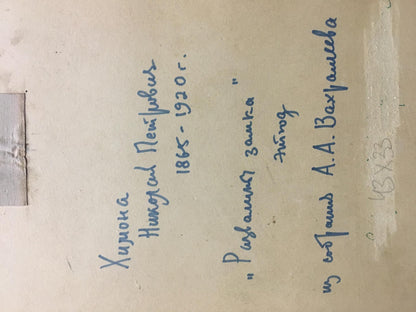 Химона
Николай Петрович
1865-1920 г.
"Развалины замка"
этюд
из собрания А.А. Вахрамеева
43x33